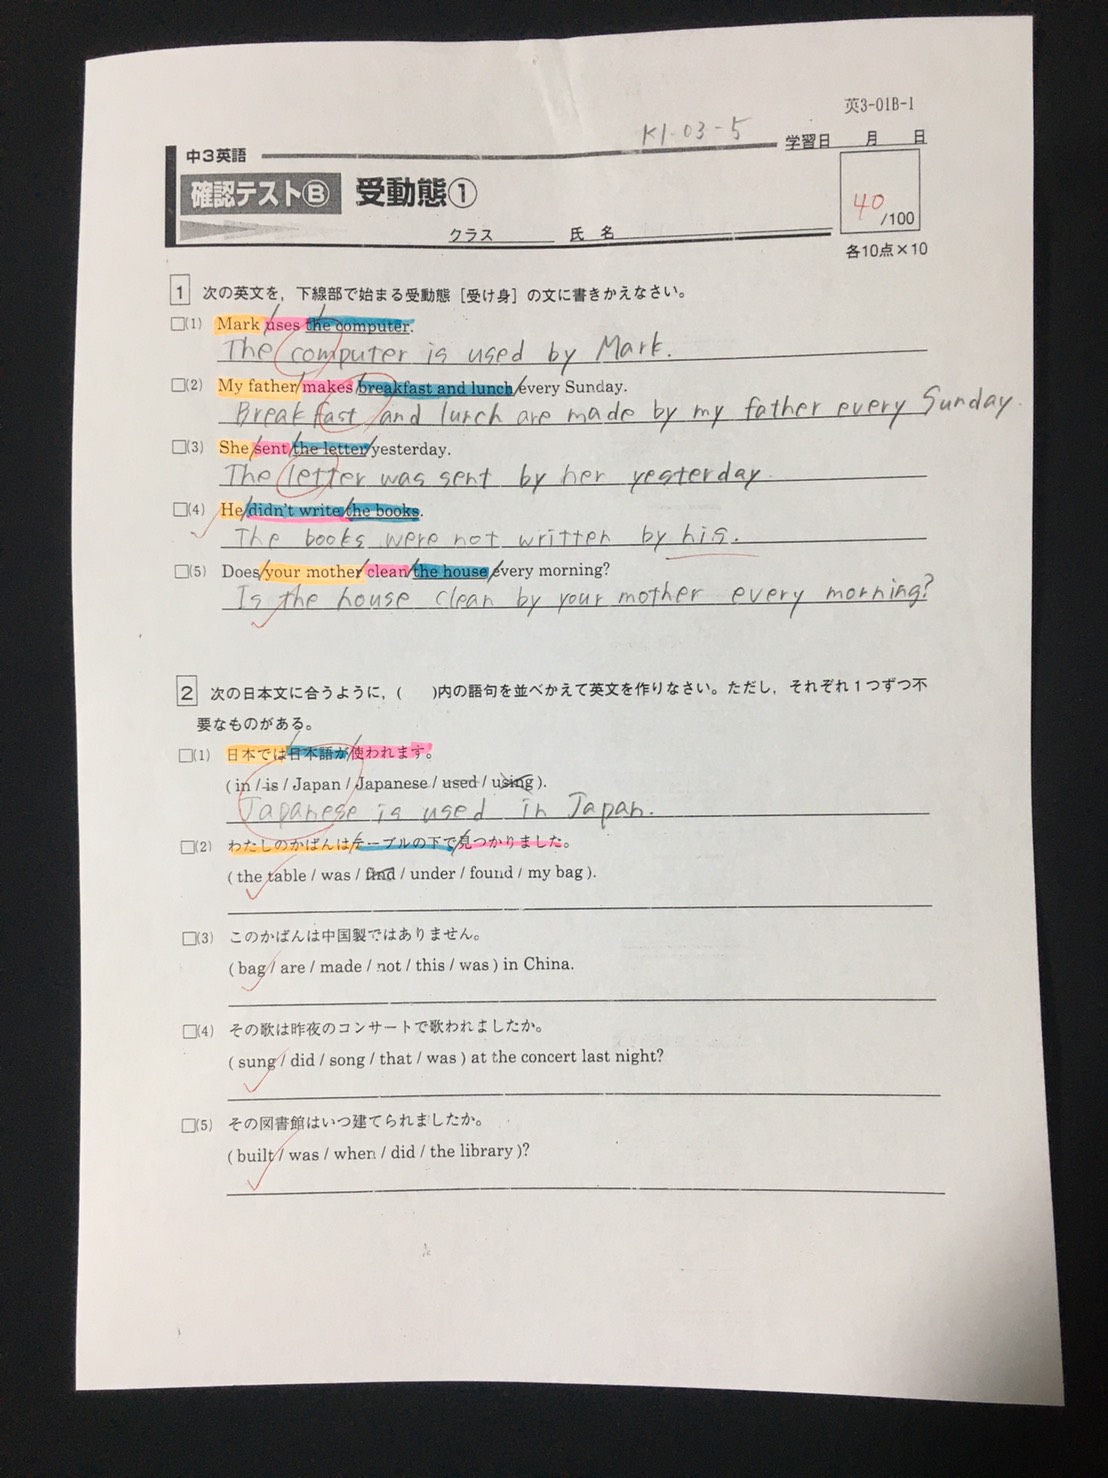 英3-01B-1
K1-03-5
学習日 月 日
中3英語
確認テストⒷ 受動態①
40 /100
クラス 氏名
各10点×10
1 次の英文を，下線部で始まる受動態［受け身］の文に書きかえなさい。
□(1) Mark/uses/the computer.
The computer is used by Mark.
□(2) My father/makes/breakfast and lunch/every Sunday.
Breakfast and lunch are made by my father every Sunday.
□(3) She/sent/the letter/yesterday.
The letter was sent by her yesterday.
□(4) He/didn't write/the books.
The books were not written by his.
□(5) Does/your mother/clean/the house/every morning?
Is the house clean by your mother every morning?
2 次の日本文に合うように，(　　)内の語句を並べかえて英文を作りなさい。ただし，それぞれ１つずつ不
要なものがある。
□(1) 日本では/日本語が/使われます。
( in / is / Japan / Japanese / used / using ).
Japanese is used in Japan.
□(2) わたしのかばんは/テーブルの下で/見つかりました。
( the table / was / find / under / found / my bag ).
□(3) このかばんは中国製ではありません。
( bag / are / made / not / this / was ) in China.
□(4) その歌は昨夜のコンサートで歌われましたか。
( sung / did / song / that / was ) at the concert last night?
□(5) その図書館はいつ建てられましたか。
( built / was / when / did / the library )?